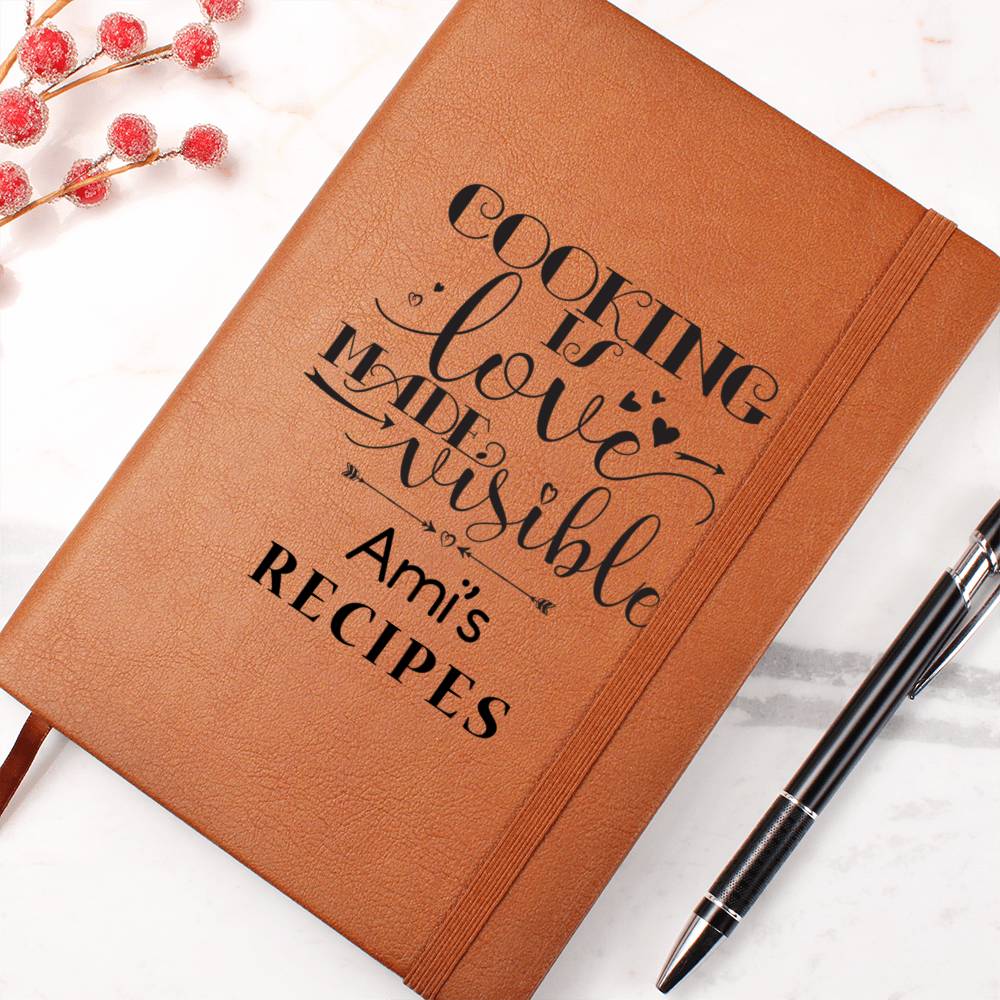 COOKING
IS
love
MADE
visible
Ami's
RECIPES